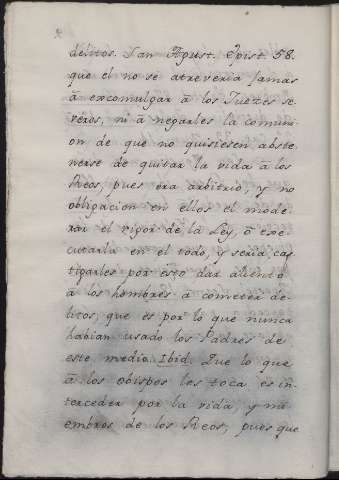 delitos. San Agust. Epist. 58.
que el no se atreveria jamas
â excomulgar â los Juezes se-
veros, ni â negarles la comuni-
on de que no quisiesen abste
nerse de quitar la vida â los
Reos, pues era arbitrio, y no
obligacion en ellos el mode-
rar el rigor de la Ley, ô exe-
cutarla en el todo, y seria cas
tigarles por esto dar aliento
â los hombres â cometer de-
litos; que es por lo que nunca
habian usado los Padres de
este medio. Ibid. Que lo que
â los obispos les toca es in-
terceder por la vida, y mi
embros de los Reos, pues que